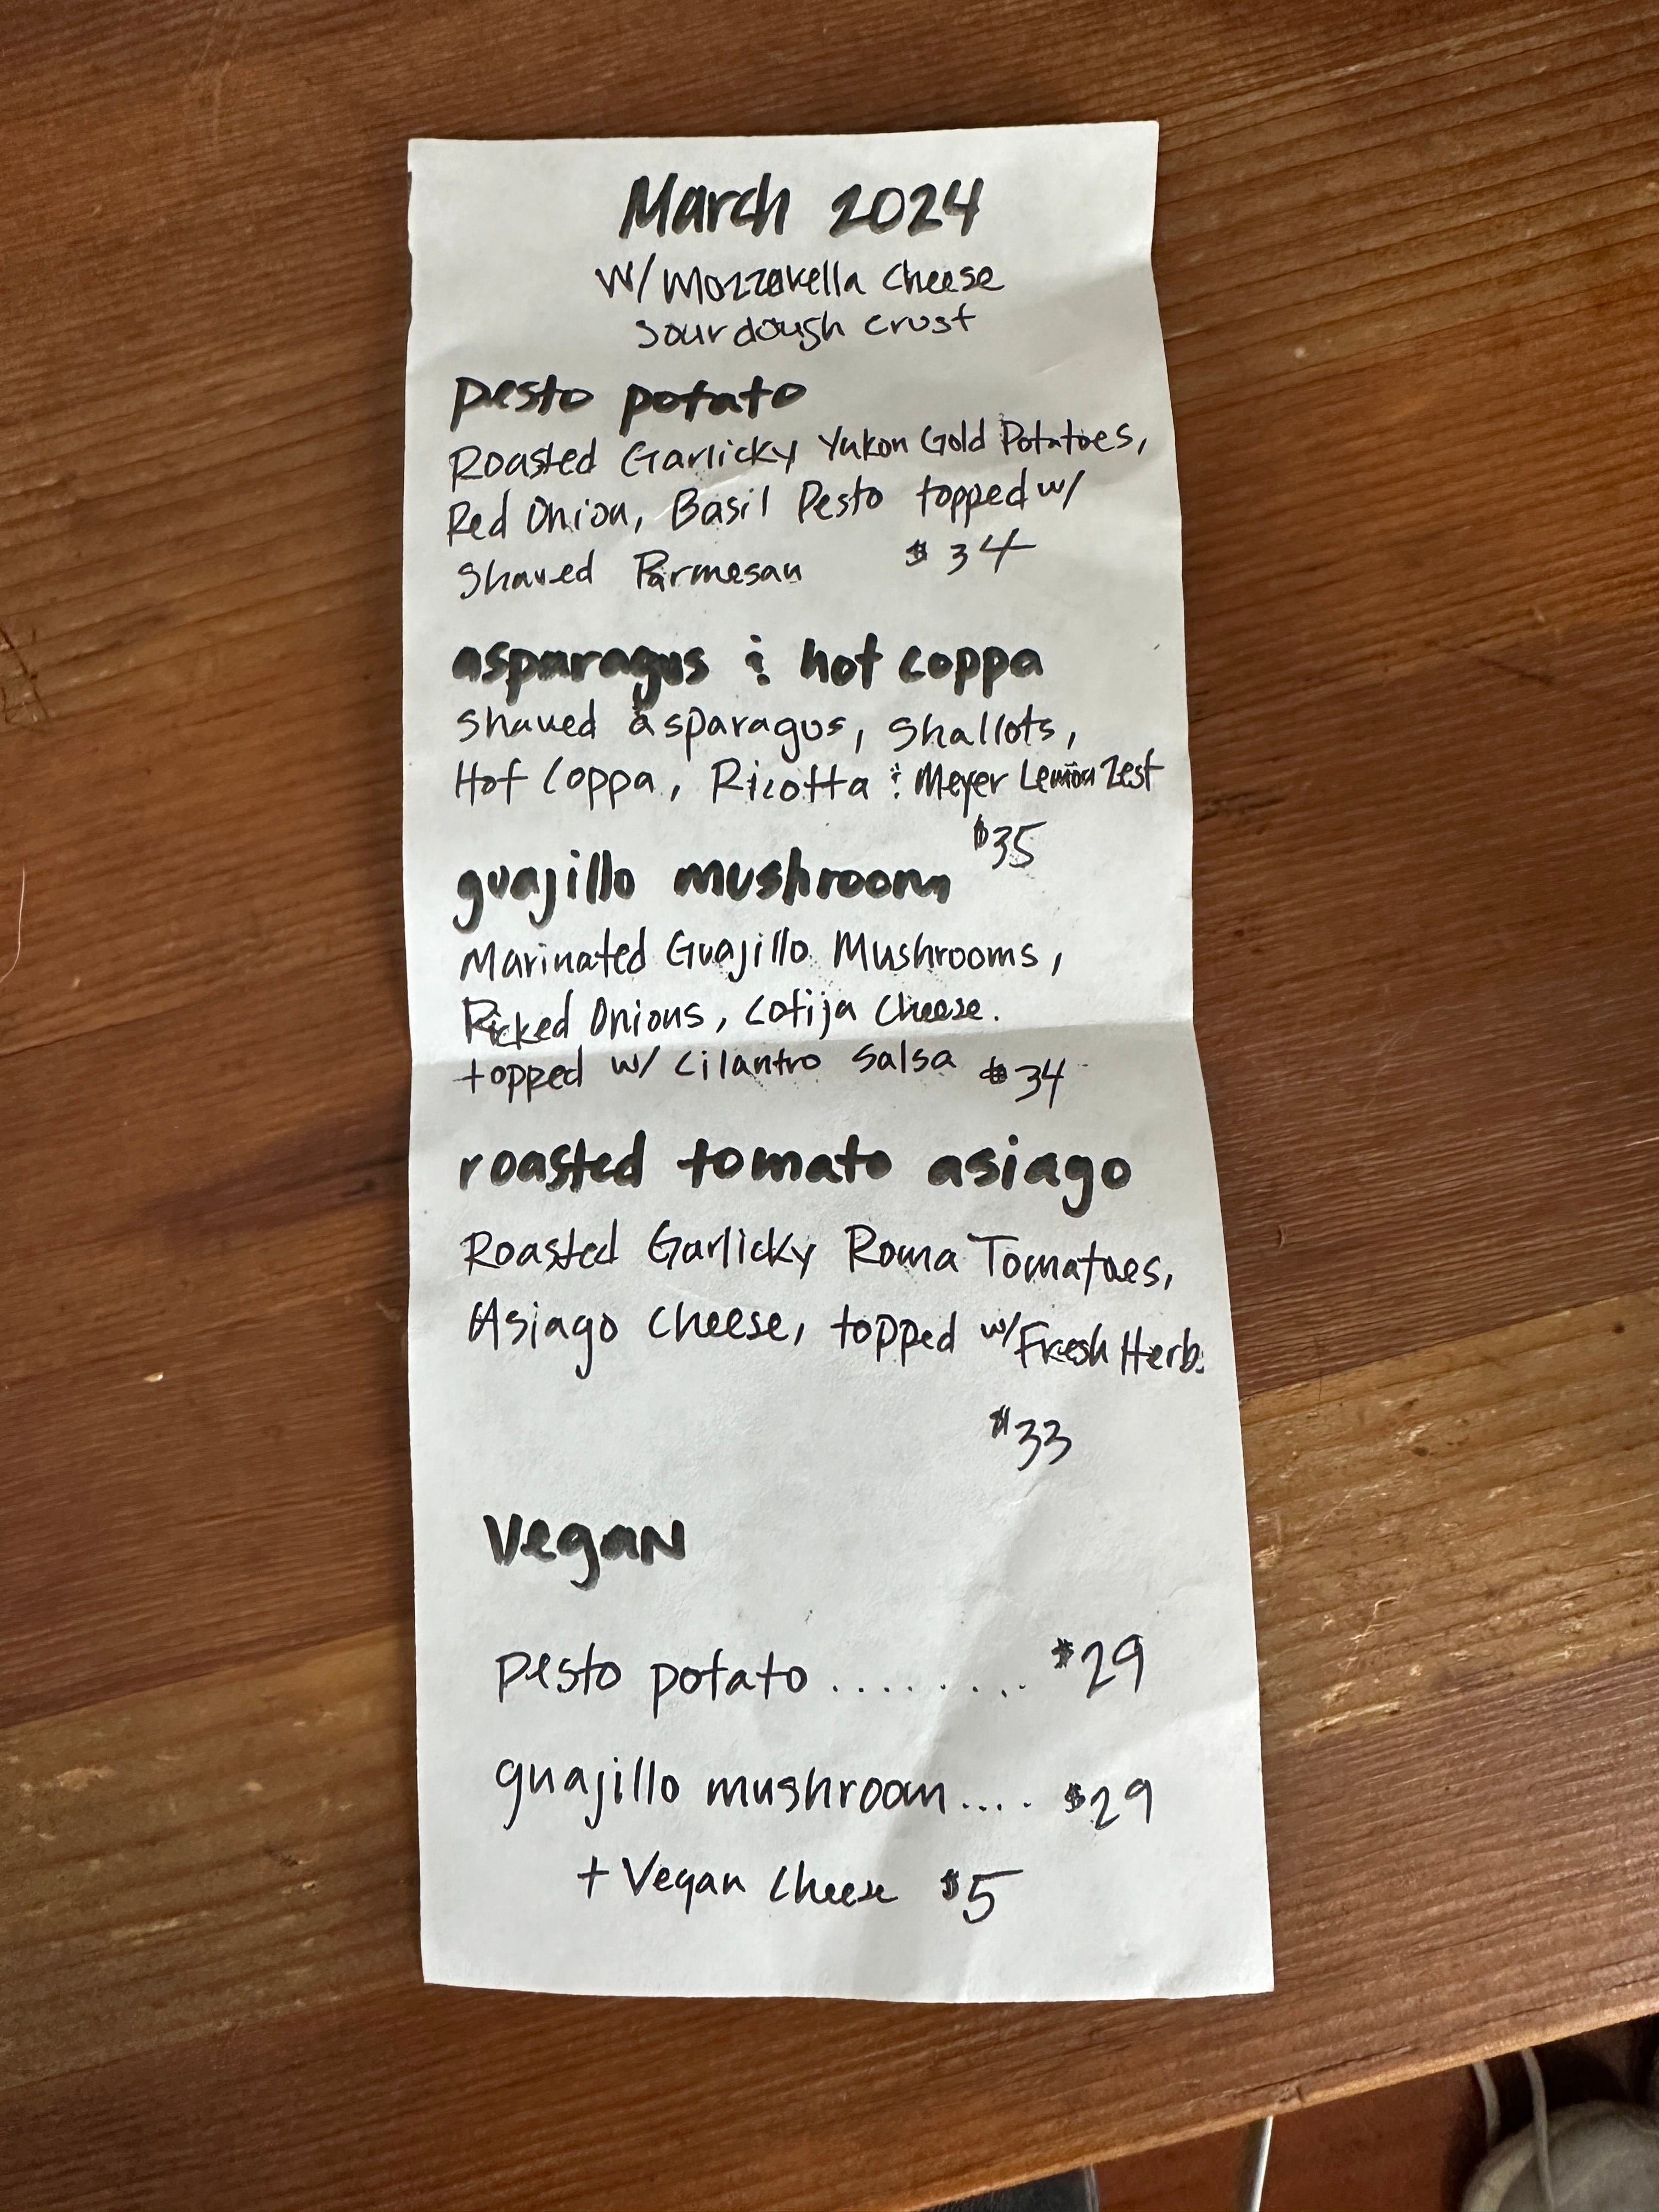 March 2024
w/ Mozzarella Cheese
Sourdough Crust
pesto potato
Roasted Garlicky Yukon Gold Potatoes,
Red Onion, Basil Pesto topped w/
Shaved Parmesan $34
asparagus & hot coppa
Shaved asparagus, Shallots,
Hot Coppa, Ricotta & Meyer Lemon Zest
$35
guajillo mushroom
Marinated Guajillo Mushrooms,
Picked Onions, Cotija Cheese.
topped w/ Cilantro Salsa $34
roasted tomato asiago
Roasted Garlicky Roma Tomatoes,
Asiago Cheese, topped w/ Fresh Herb.
$33
vegan
pesto potato ........ $29
guajillo mushroom .... $29
+ Vegan Cheese $5